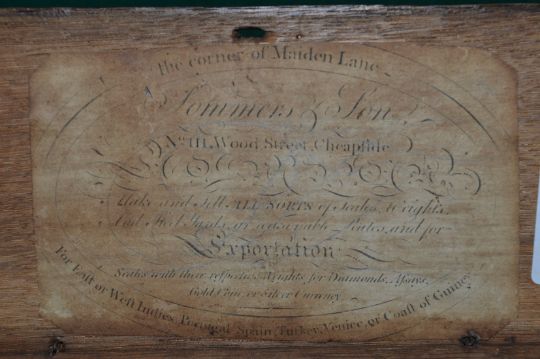 the corner of Maiden Lane
Sommers & Son
No. 111, Wood Street, Cheapside
LONDON
Make and Sell ALL SORTS of Scales, Weights,
And Steel Yards, at reasonable Rates, and for
Exportation
Scales with their respective Weights for Diamonds, Assays,
Gold Coin, or Silver Currency
For East or West Indies, Portugal, Spain, Turkey, Venice, or Coast of Guiney